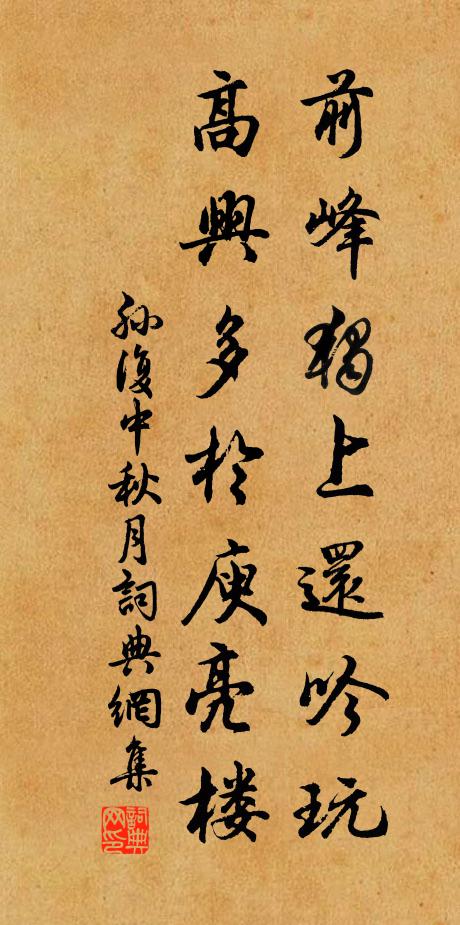 前峰獨上還吟玩
高興多於庾亮楼
孫復中秋月詞典網集
詞典网印